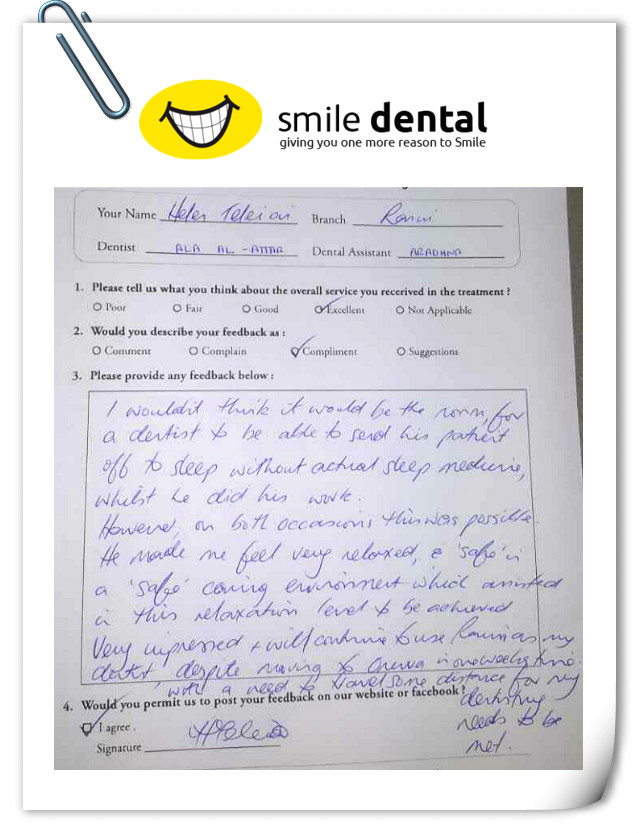 smile dental
giving you one more reason to Smile
Your Name Helen Branch Ranui
Dentist ALA AL-ATTAR Dental Assistant ARADHNA
1. Please tell us what you think about the overall service you recerived in the treatment ?
Poor Fair Good Excellent Not Applicable
2. Would you describe your feedback as :
Comment Complain Compliment Suggestions
3. Please provide any feedback below :
I wouldn't think it would be the norm, for
a dentist to be able to send his patient
off to sleep without actual sleep medicine,
whilst he did his work.
However, on both occasions this was possible.
He made me feel very relaxed, & 'safe' in
a 'safe' caring environment which assisted
in this relaxation level to be achieved
Very impressed + will continue to use Ranui as my
dentist, despite moving to in one weeks time.
with a need to travel some distance for my
dentistry
needs to be
met.
4. Would you permit us to post your feedback on our website or facebook?
I agree .
Signature